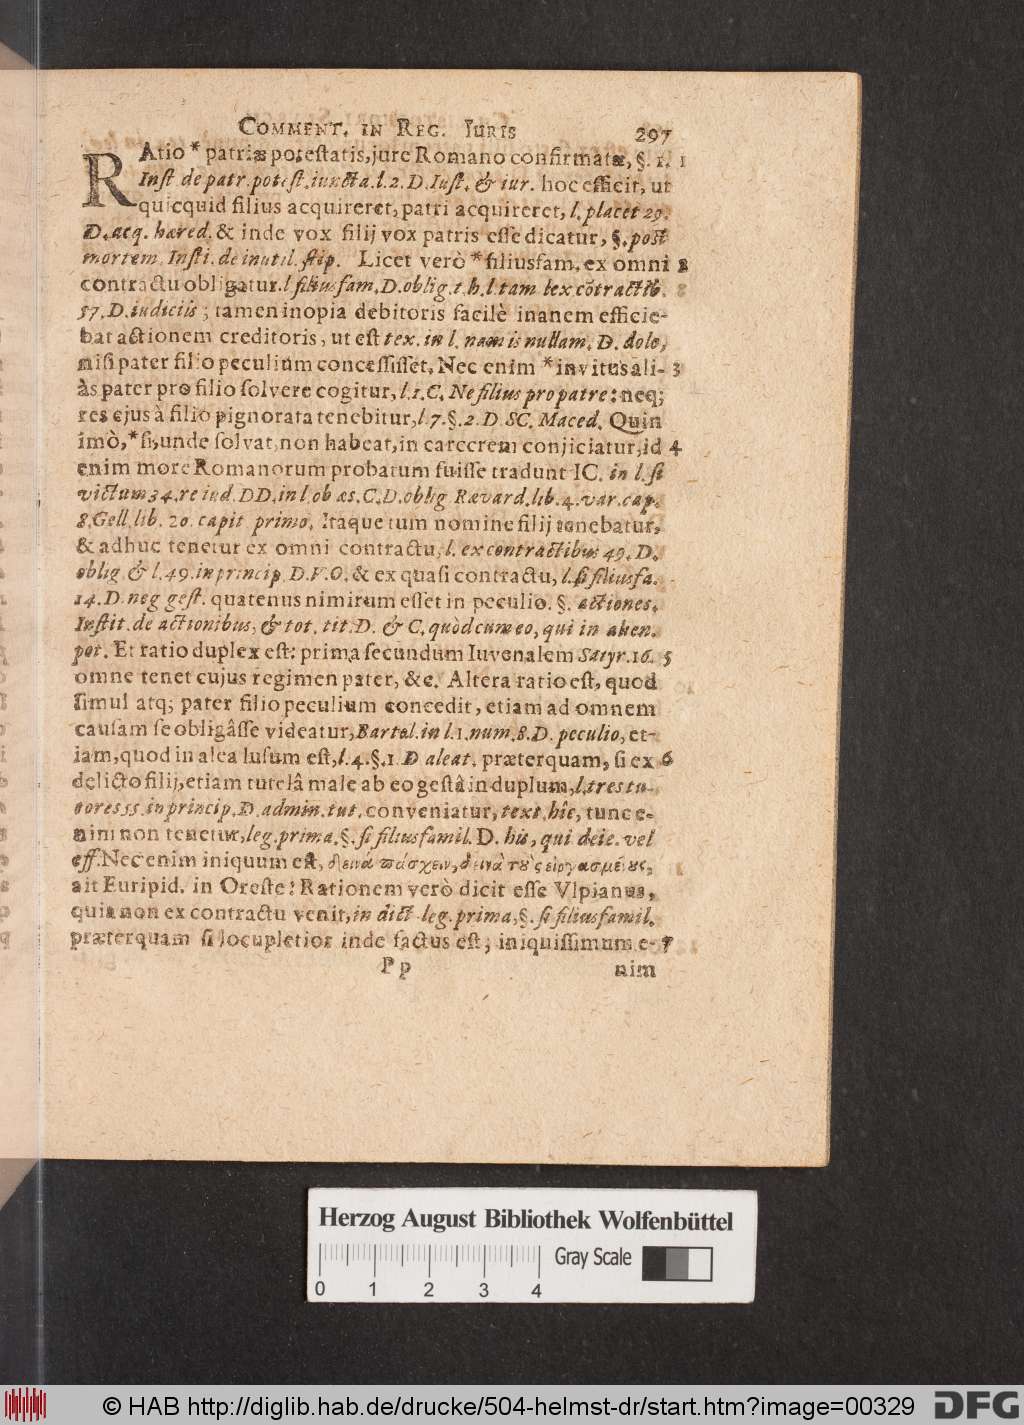 COMMENT. IN REG. IURIS 297
RAtio * patriæ potestatis, jure Romano confirmatæ, §. 1. 1
Inst de patr. potest. iuncta. l. 2. D. Iust. & iur. hoc efficit, ut
quicquid filius acquireret, patri acquireret, l. placet 29.
D. acq. hæred. & inde vox filij vox patris esse dicatur, §. post
mortem. Insti. de inutil. stip. Licet verò * filiusfam. ex omni 2
contractu obligatur. l filiusfam. D. oblig. t. h. l. tam lex cõtractib.
57. D. iudiciis; tamen inopia debitoris facilè inanem efficie-
bat actionem creditoris, ut est tex. in l. nam is nullam. D. dolo,
nisi pater filio peculium concessisset, Nec enim * invitus ali- 3
às pater pro filio solvere cogitur, l. 1. C. Ne filius pro patre: neq;
res ejus à filio pignorata tenebitur, l 7. §. 2. D SC. Maced. Quin
imò, * si, unde solvat, non habeat, in carcerem conjiciatur, id 4
enim more Romanorum probatum fuisse tradunt IC. in l. si
victum 34. re iud. DD. in l. ob æs. C. D. oblig Rævard. lib. 4. var. cap.
8. Gell. lib. 20. capit primo. Itaque tum nomine filij tenebatur,
& adhuc tenetur ex omni contractu, l. ex contractibus 49. D.
oblig. & l. 49. in princip. D. V. O. & ex quasi contractu, l. si filiusfa.
14. D. neg gest. quatenus nimirum esset in peculio. §. actiones.
Instit. de actionibus, & tot. tit. D. & C. quòd cum eo, qui in alien.
pot. Et ratio duplex est: prima secundum Iuvenalem Satyr. 16. 5
omne tenet cujus regimen pater, &c. Altera ratio est, quod
simul atq; pater filio peculium concedit, etiam ad omnem
causam se obligâsse videatur, Bartol. in l. 1. num. 8. D. peculio, et-
iam, quod in alea lusum est, l. 4. §. 1. D aleat. præterquam, si ex 6
delicto filij, etiam tutelâ male ab eo gestâ in duplum, l. tres tu-
tores 55. in princip. D. admin. tut. conveniatur, text. hîc, tunc e-
nim non tenetur, leg. prima. §. si filiusfamil. D. his, qui deie. vel
eff. Nec enim iniquum est, δεινὰ πάσχειν, δεινὰ τοὺς εἰργασμένους,
ait Euripid. in Oreste: Rationem verò dicit esse Vlpianus,
quia non ex contractu venit, in dict. leg. prima, §. si filiusfamil.
præterquam si locupletior inde factus est; iniquissimum e- 7
Pp nim
Herzog August Bibliothek Wolfenbüttel
Gray Scale
0 1 2 3 4
© HAB http://diglib.hab.de/drucke/504-helmst-dr/start.htm?image=00329 DFG